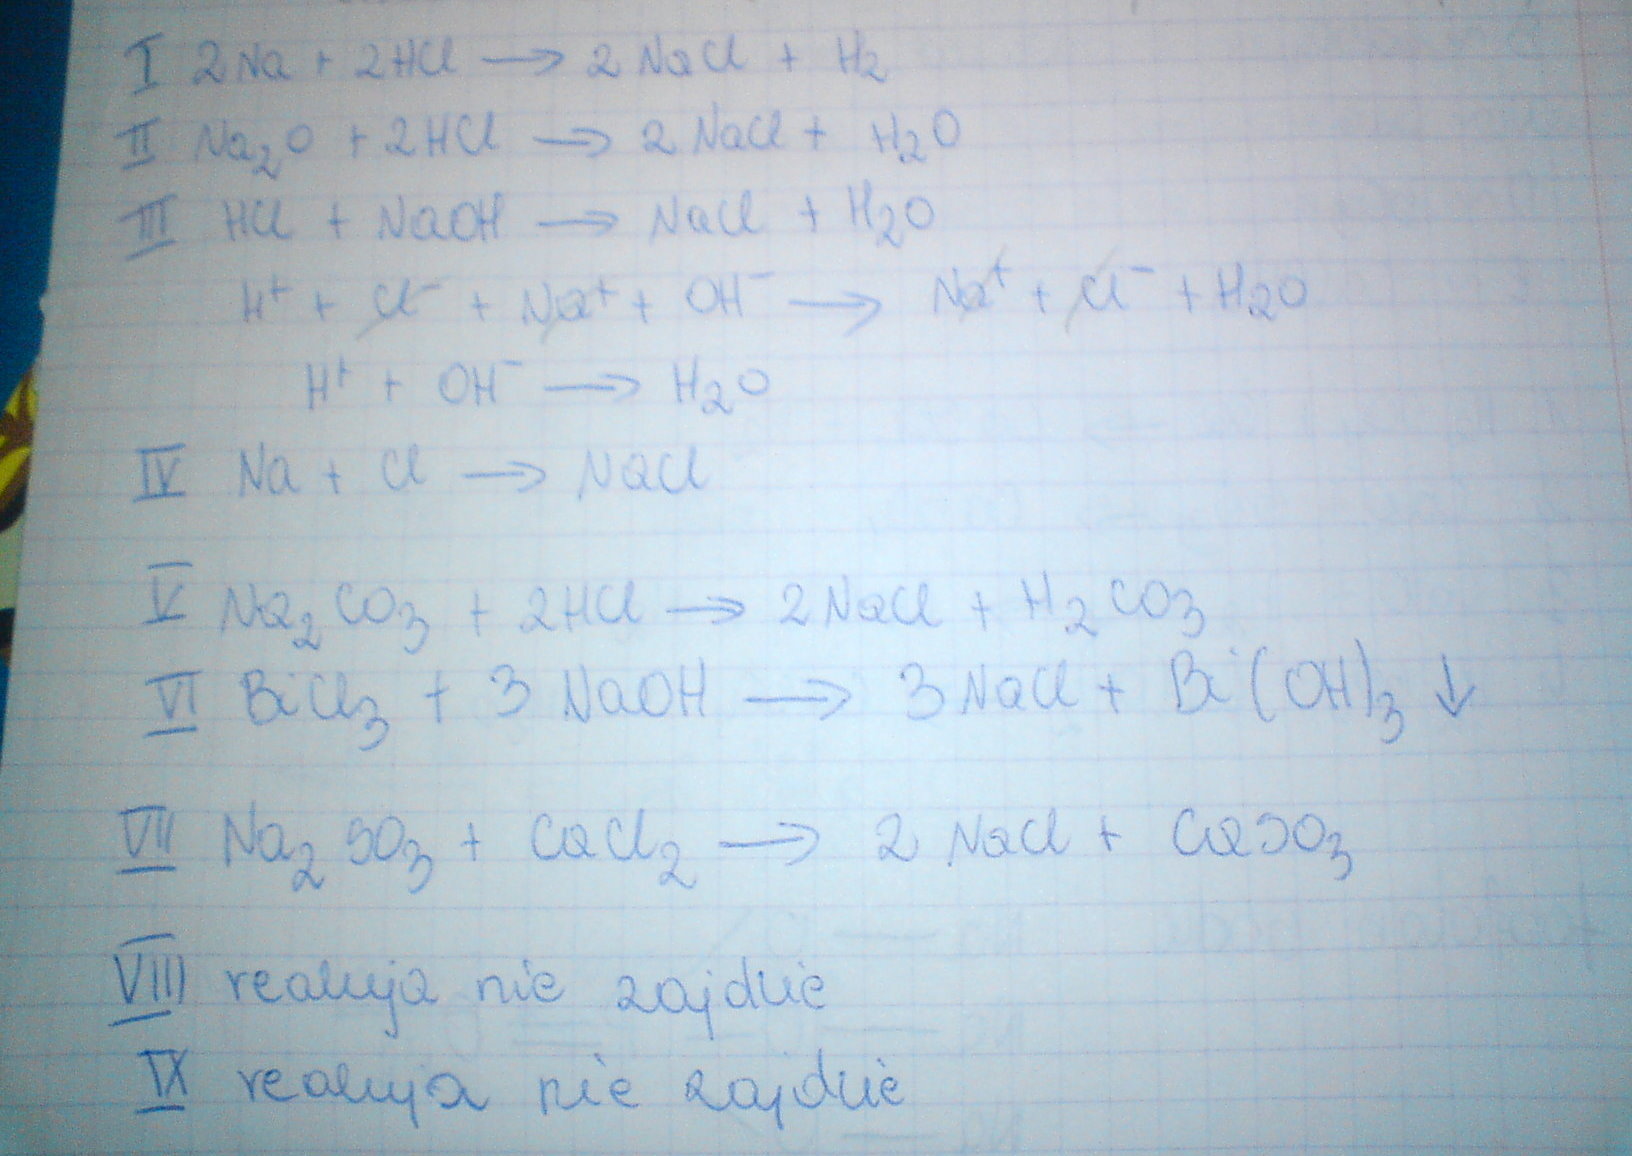 I 2Na + 2HCl → 2 NaCl + H₂
II Na₂O + 2HCl → 2 NaCl + H₂O
III HCl + NaOH → NaCl + H₂O
H⁺ + Cl⁻ + Na⁺ + OH⁻ → Na⁺ + Cl⁻ + H₂O
H⁺ + OH⁻ → H₂O
IV Na + Cl → NaCl
V Na₂CO₃ + 2HCl → 2NaCl + H₂CO₃
VI BiCl₃ + 3 NaOH → 3 NaCl + Bi(OH)₃ ↓
VII Na₂SO₃ + CaCl₂ → 2 NaCl + CaSO₃
VIII reakcja nie zajdzie
IX reakcja nie zajdzie